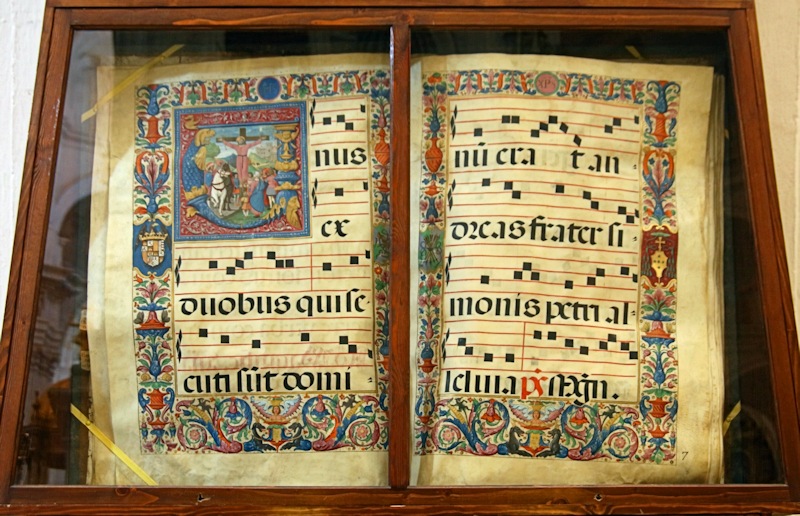 Unus
ex
duobus qui se-
cuti sūt domi-
nū erat an-
dreas frater si-
monis petri al-
leluia
7